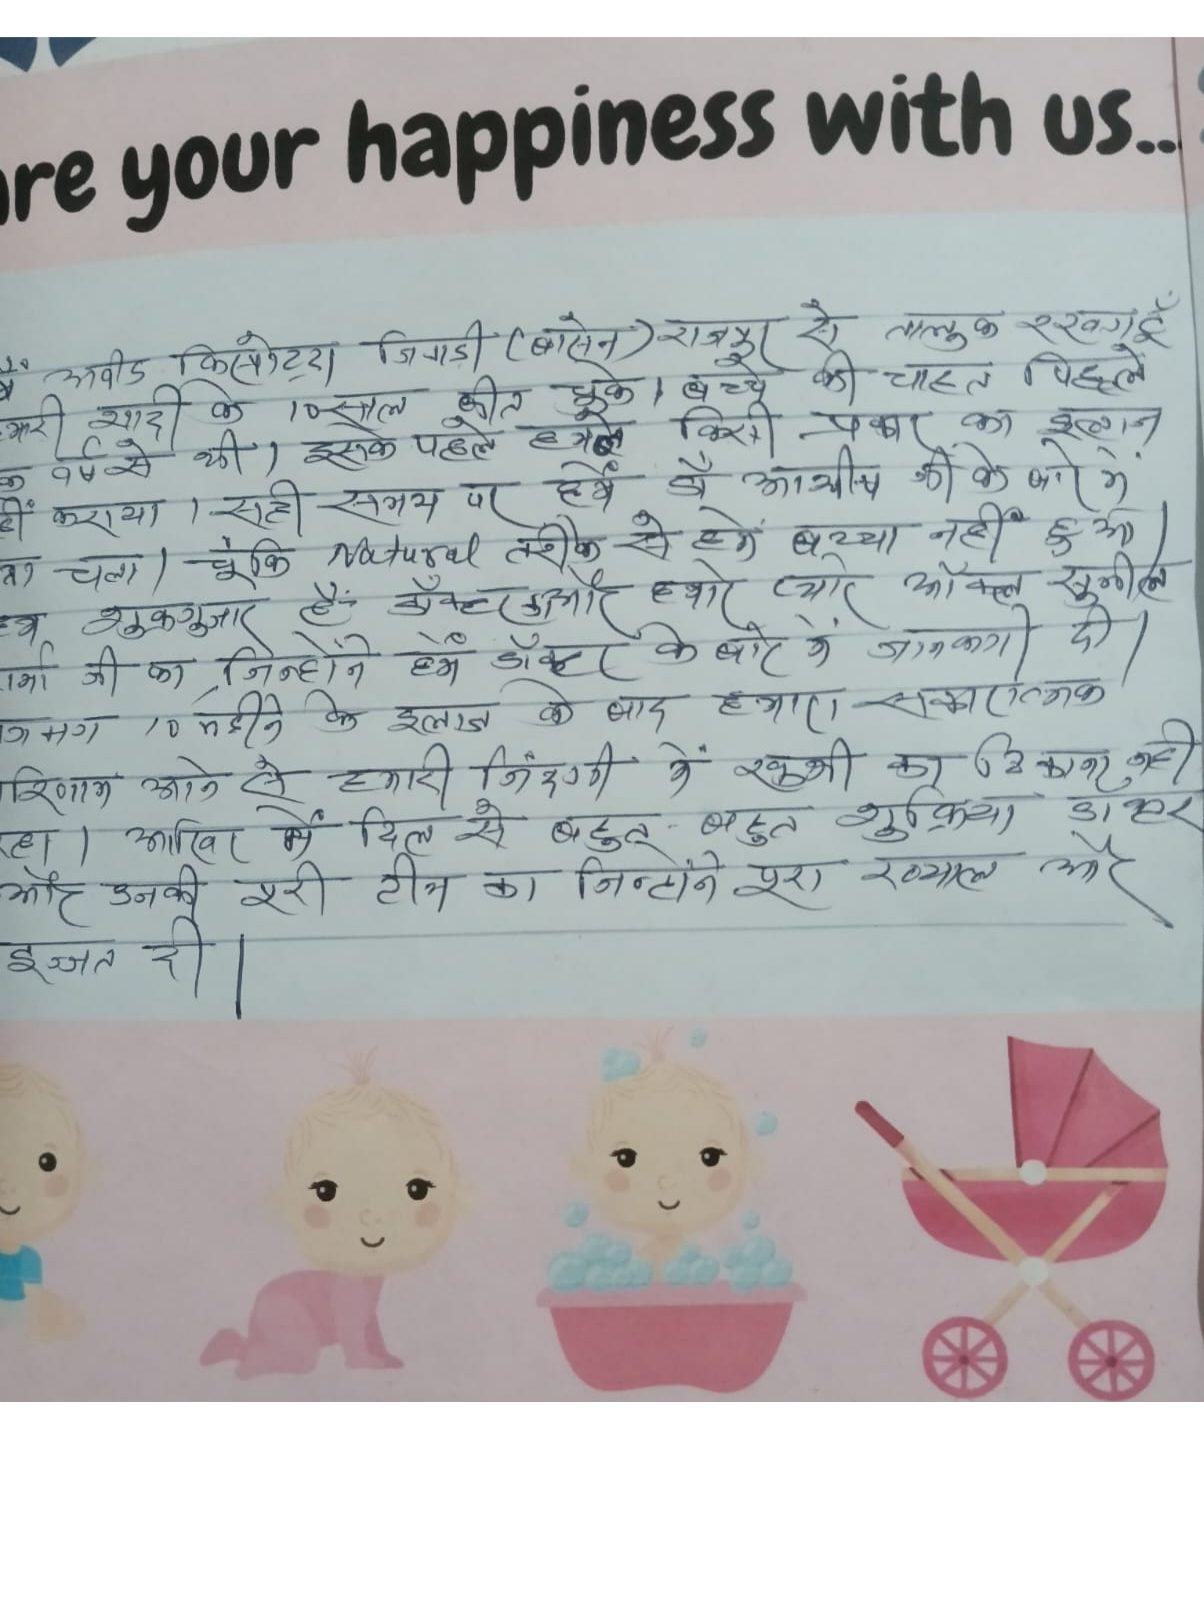 are your happiness with us...
जिवाड़ी (बांसेन) राजपुर से तालुक रखता हूँ
शादी के 10 साल बीत चुके। बच्चे की चाहत पिछले
से थी। इसके पहले हमने किसी प्रकार का इलाज
कराया। सही समय पर हमें डॉ आशीष जी के बारे में
चला। चूंकि Natural तरीके से हमें बच्चा नहीं हुआ।
शुक्रगुजार हैं- डॉक्टर और हमारे प्यारे अंकल सुनील
जी का, जिन्होंने हमें डॉक्टर के बारे में जानकारी दी।
10 महीने के इलाज के बाद हमारा सकारात्मक
आने से हमारी जिंदगी में खुशी का ठिकाना नहीं
रहा। आखिर में दिल से बहुत-बहुत शुक्रिया डाक्टर
और उनकी पूरी टीम का जिन्होंने पूरा ख्याल और
इज्जत दी।